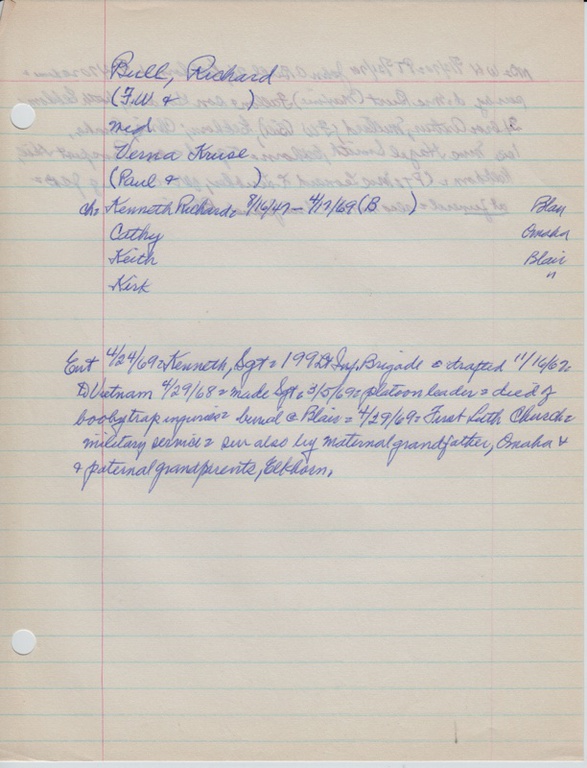 Bull, Richard
(F.W & )
md
Verna Kruse
(Paul & )
ch= Kenneth Richard= 8/16/47 - 4/17/69 (B ) Blair
Cathy Omaha
Keith Blair
Kirk "
Ent 4/24/69= Kenneth, Sgt= 199 Lt Inf. Brigade = drafted 11/16/67=
Vietnam 4/29/68= made Sgt, 3/5/69= platoon leader= died of
booby trap injuries= burial @ Blair= 4/29/69= First Luth Church=
military service= sur also by maternal grandfather, Omaha &
& paternal grandparents, Elkhorn,